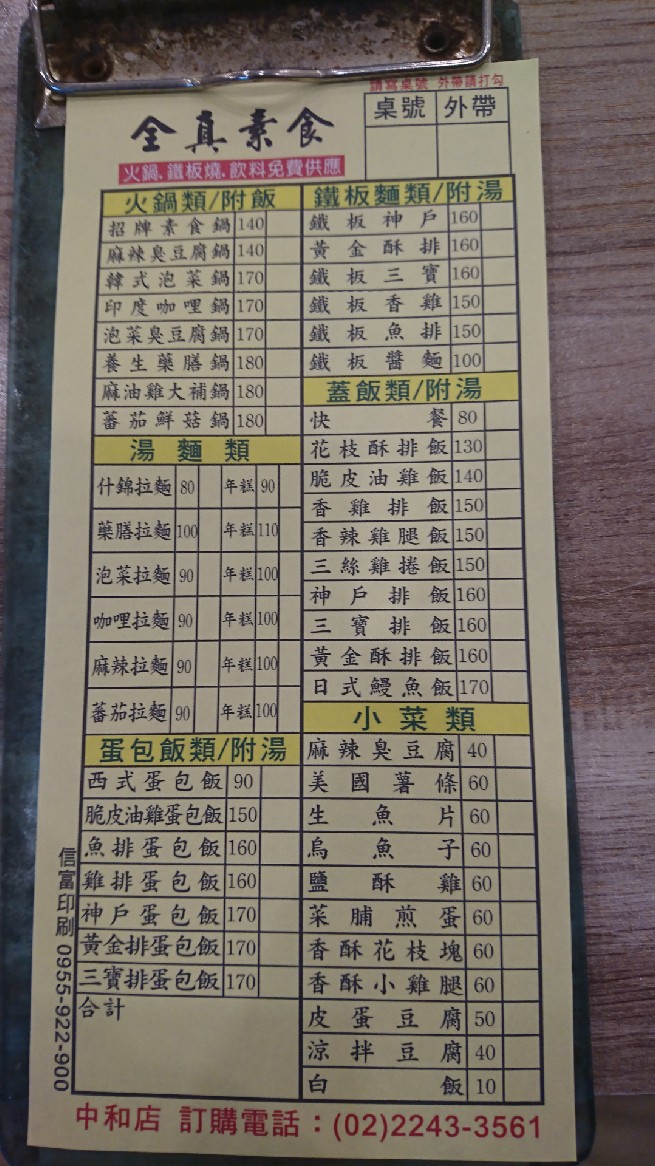 請寫桌號 外帶請打勾
桌號 外帶
全真素食
火鍋、鐵板燒、飲料免費供應
火鍋類/附飯
招牌素食鍋 140
麻辣臭豆腐鍋 140
韓式泡菜鍋 170
印度咖哩鍋 170
泡菜臭豆腐鍋 170
養生藥膳鍋 180
麻油雞大補鍋 180
蕃茄鮮菇鍋 180
湯麵類
什錦拉麵 80 年糕 90
藥膳拉麵 100 年糕 110
泡菜拉麵 90 年糕 100
咖哩拉麵 90 年糕 100
麻辣拉麵 90 年糕 100
蕃茄拉麵 90 年糕 100
蛋包飯類/附湯
西式蛋包飯 90
脆皮油雞蛋包飯 150
魚排蛋包飯 160
雞排蛋包飯 160
神戶蛋包飯 170
黃金排蛋包飯 170
三寶排蛋包飯 170
合計
鐵板麵類/附湯
鐵板神戶 160
黃金酥排 160
鐵板三寶 160
鐵板香雞 150
鐵板魚排 150
鐵板醬麵 100
蓋飯類/附湯
快餐 80
花枝酥排飯 130
脆皮油雞飯 140
香雞排飯 150
香辣雞腿飯 150
三絲雞捲飯 150
神戶排飯 160
三寶排飯 160
黃金酥排飯 160
日式鰻魚飯 170
小菜類
麻辣臭豆腐 40
美國薯條 60
生魚片 60
烏魚子 60
鹽酥雞 60
菜脯煎蛋 60
香酥花枝塊 60
香酥小雞腿 60
皮蛋豆腐 50
涼拌豆腐 40
白飯 10
信富印刷 0955-922-900
中和店 訂購電話：(02)2243-3561